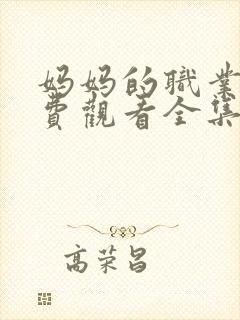 妈妈的職業
費觀看全集
高荣昌